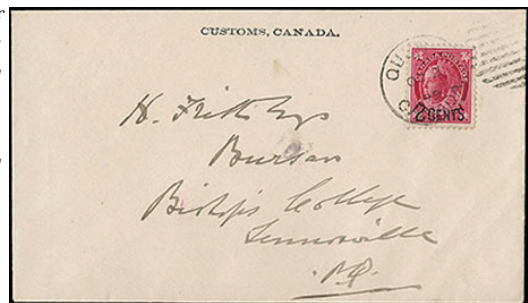 CUSTOMS, CANADA.
QU
2 CENTS
H. Frith Esq
Bursar
Bishop's College
Lennoxville
P.Q.